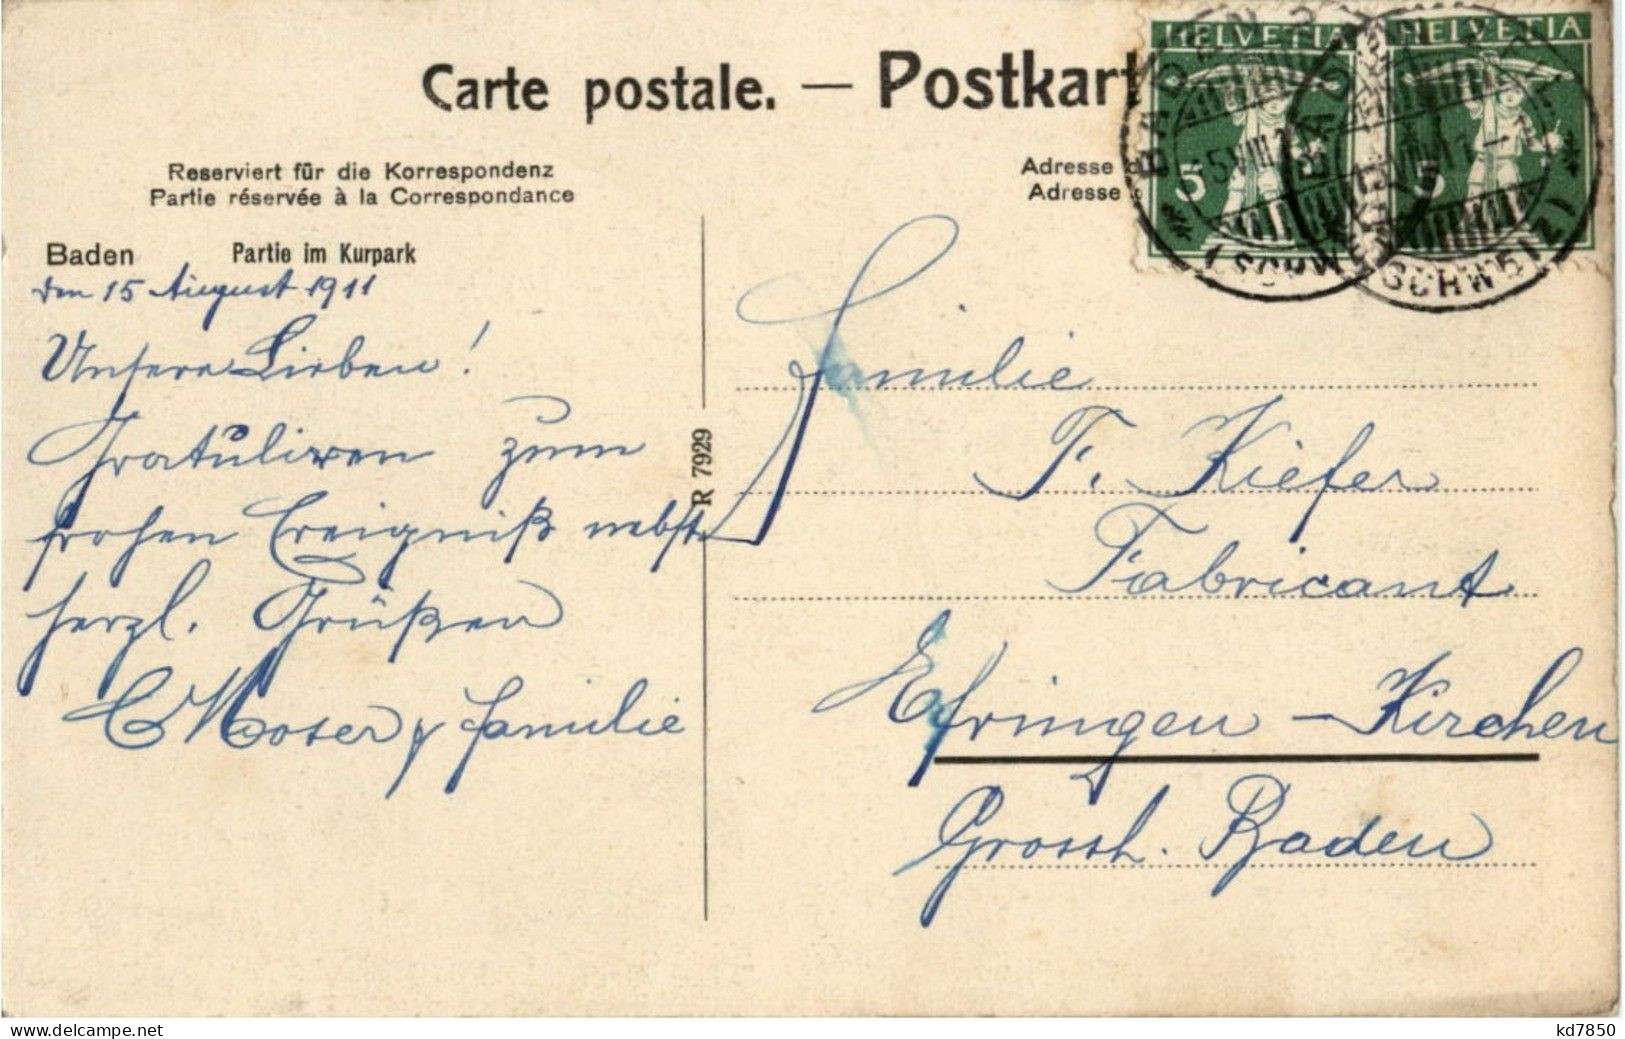 Carte postale. — Postkart
HELVETIA HELVETIA
5 5
BADEN
(SCHWEIZ)
Reserviert für die Korrespondenz
Partie réservée à la Correspondance
Adresse
Adresse
Baden Partie im Kurpark
den 15 August 1911
Unsere Lieben!
Gratulieren zum
frohen Ereigniß nebst
herzl. Grüßen
C Moser & familie
R 7929
Familie
F. Kiefer
Fabricant
Efringen - Kirchen
Grossh. Baden
www.delcampe.net
kd7850